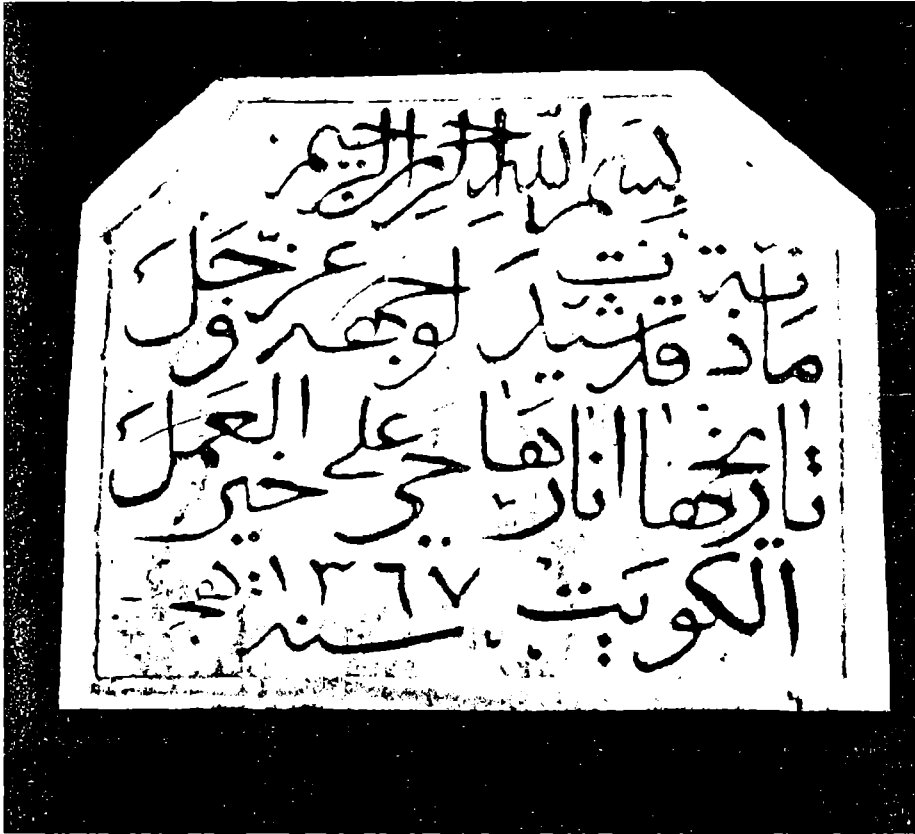 بسم الله الرحمن الرحيم
ماذنة قد شيدت لوجهه عز وجل
تاريخها انارها حي على خير العمل
الكويت سنه ١٣٦٧